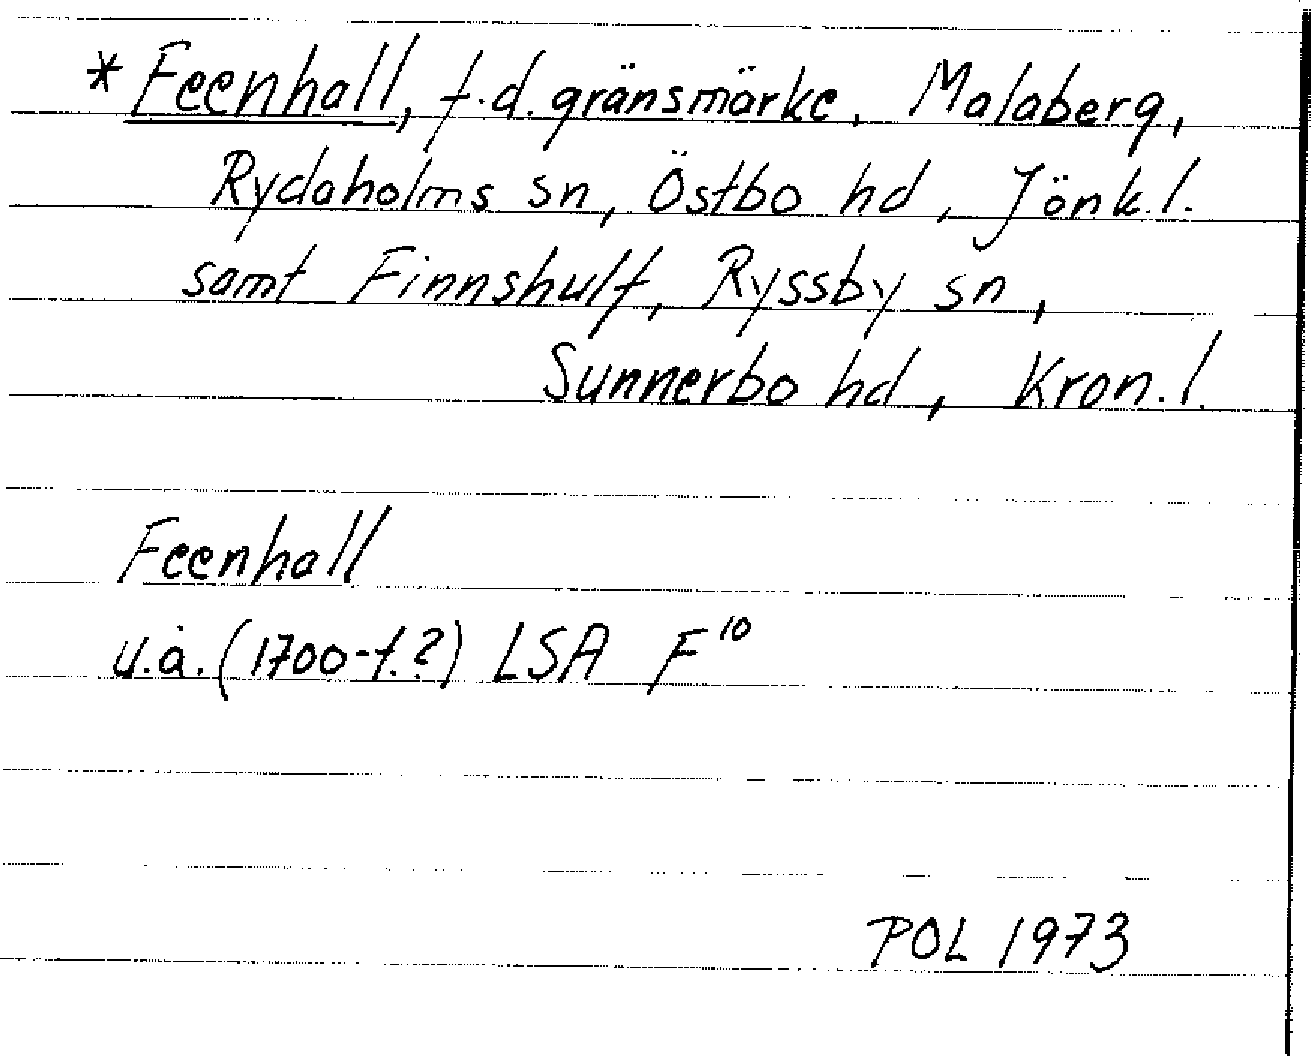 * Feenhall, f.d. gränsmärke, Malaberg,
Rydaholms sn, Östbo hd, Jönk.l.
samt Finnshult, Ryssby sn,
Sunnerbo hd, Kron.l.
Feenhall
u.å. (1700-t.?) LSA F¹⁰
POL 1973